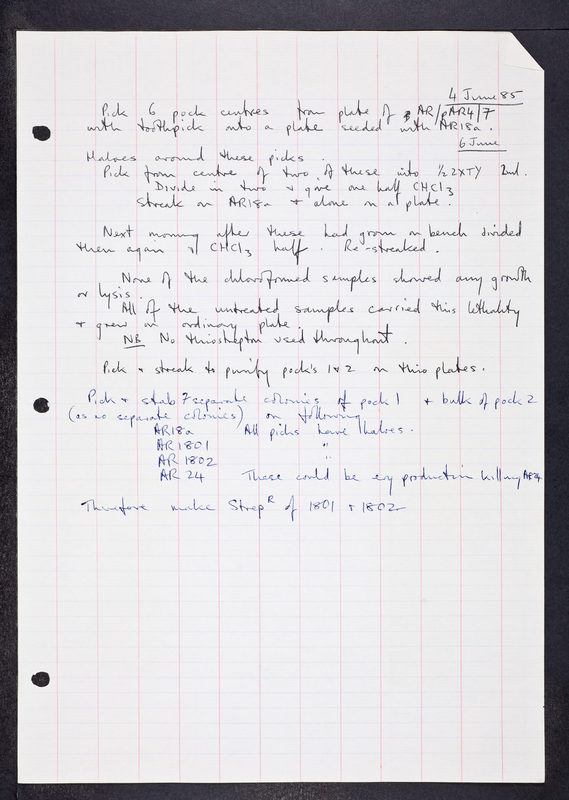 4 June 85
Pick 6 pock centres from plate of AR/pAR4/7
with toothpick into a plate seeded with AR18a.
6 June
Haloes around these picks.
Pick from centre of two of these into ½ 2XTY 2ml.
Divide in two + give one half CHCl3
Streak on AR18a + alone on a plate.
Next morning after these had grown on bench divided
them again & CHCl3 half. Re-streaked.
None of the chloroformed samples showed any growth
or lysis.
All of the untreated samples carried this lethality
+ grew on ordinary plate.
NB No thiostrepton used throughout.
Pick & streak to purify pock's 1 & 2 on thio plates.
Pick & stab 7 separate colonies of pock 1 + bulk of pock 2
(as no separate colonies) on following
AR18a All picks have haloes.
AR1801 "
AR 1802 "
AR 24 These could be ery production killing AR24
Therefore make Strep R of 1801 & 1802